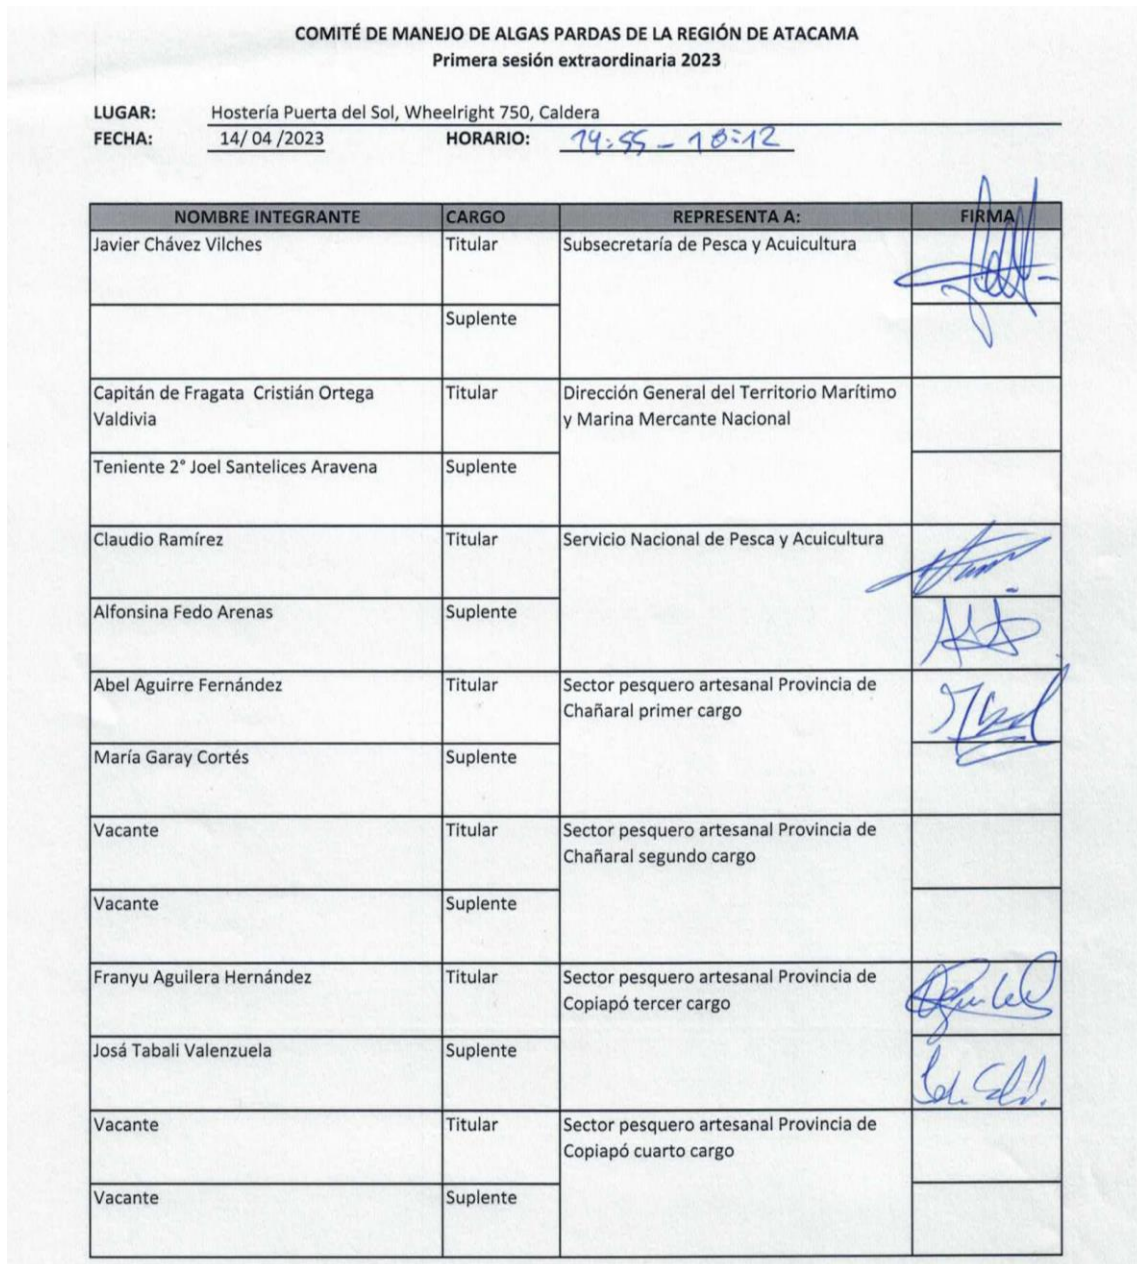 COMITÉ DE MANEJO DE ALGAS PARDAS DE LA REGIÓN DE ATACAMA
Primera sesión extraordinaria 2023
LUGAR: Hostería Puerta del Sol, Wheelright 750, Caldera
FECHA: 14/ 04 /2023 HORARIO: 14:55 - 18:12
NOMBRE INTEGRANTE CARGO REPRESENTA A: FIRMA
Javier Chávez Vilches Titular Subsecretaría de Pesca y Acuicultura
Suplente
Capitán de Fragata Cristián Ortega Titular Dirección General del Territorio Marítimo
Valdivia y Marina Mercante Nacional
Teniente 2° Joel Santelices Aravena Suplente
Claudio Ramírez Titular Servicio Nacional de Pesca y Acuicultura
Alfonsina Fedo Arenas Suplente
Abel Aguirre Fernández Titular Sector pesquero artesanal Provincia de
Chañaral primer cargo
María Garay Cortés Suplente
Vacante Titular Sector pesquero artesanal Provincia de
Chañaral segundo cargo
Vacante Suplente
Franyu Aguilera Hernández Titular Sector pesquero artesanal Provincia de
Copiapó tercer cargo
Josá Tabali Valenzuela Suplente
Vacante Titular Sector pesquero artesanal Provincia de
Copiapó cuarto cargo
Vacante Suplente